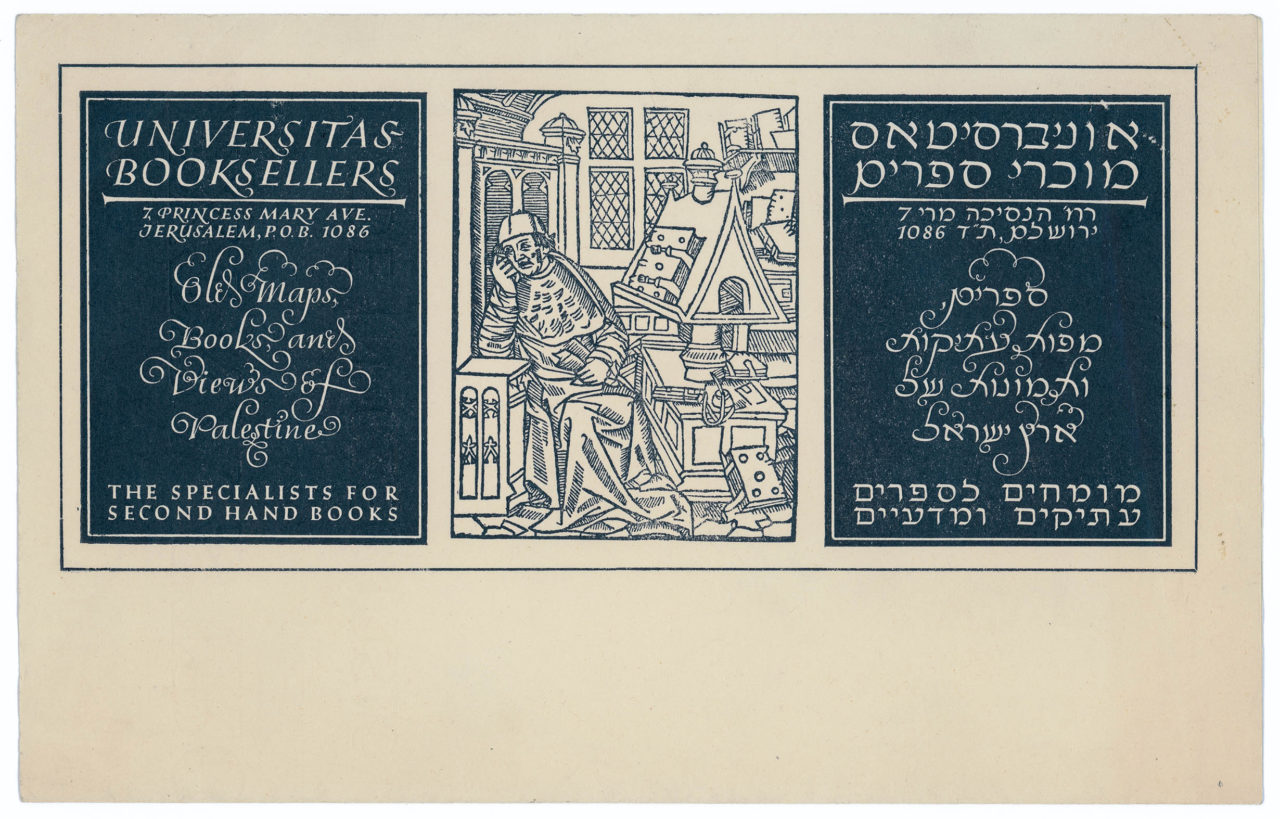 UNIVERSITAS
BOOKSELLERS
7, PRINCESS MARY AVE.
JERUSALEM, P.O.B. 1086
Old Maps,
Books and
Views of
Palestine
THE SPECIALISTS FOR
SECOND HAND BOOKS
אוניברסיטאס
מוכרי ספרים
רח' הנסיכה מרי 7
ירושלם, ת"ד 1086
ספרים,
מפות עתיקות
ותמונות של
ארץ ישראל
מומחים לספרים
עתיקים ומדעיים